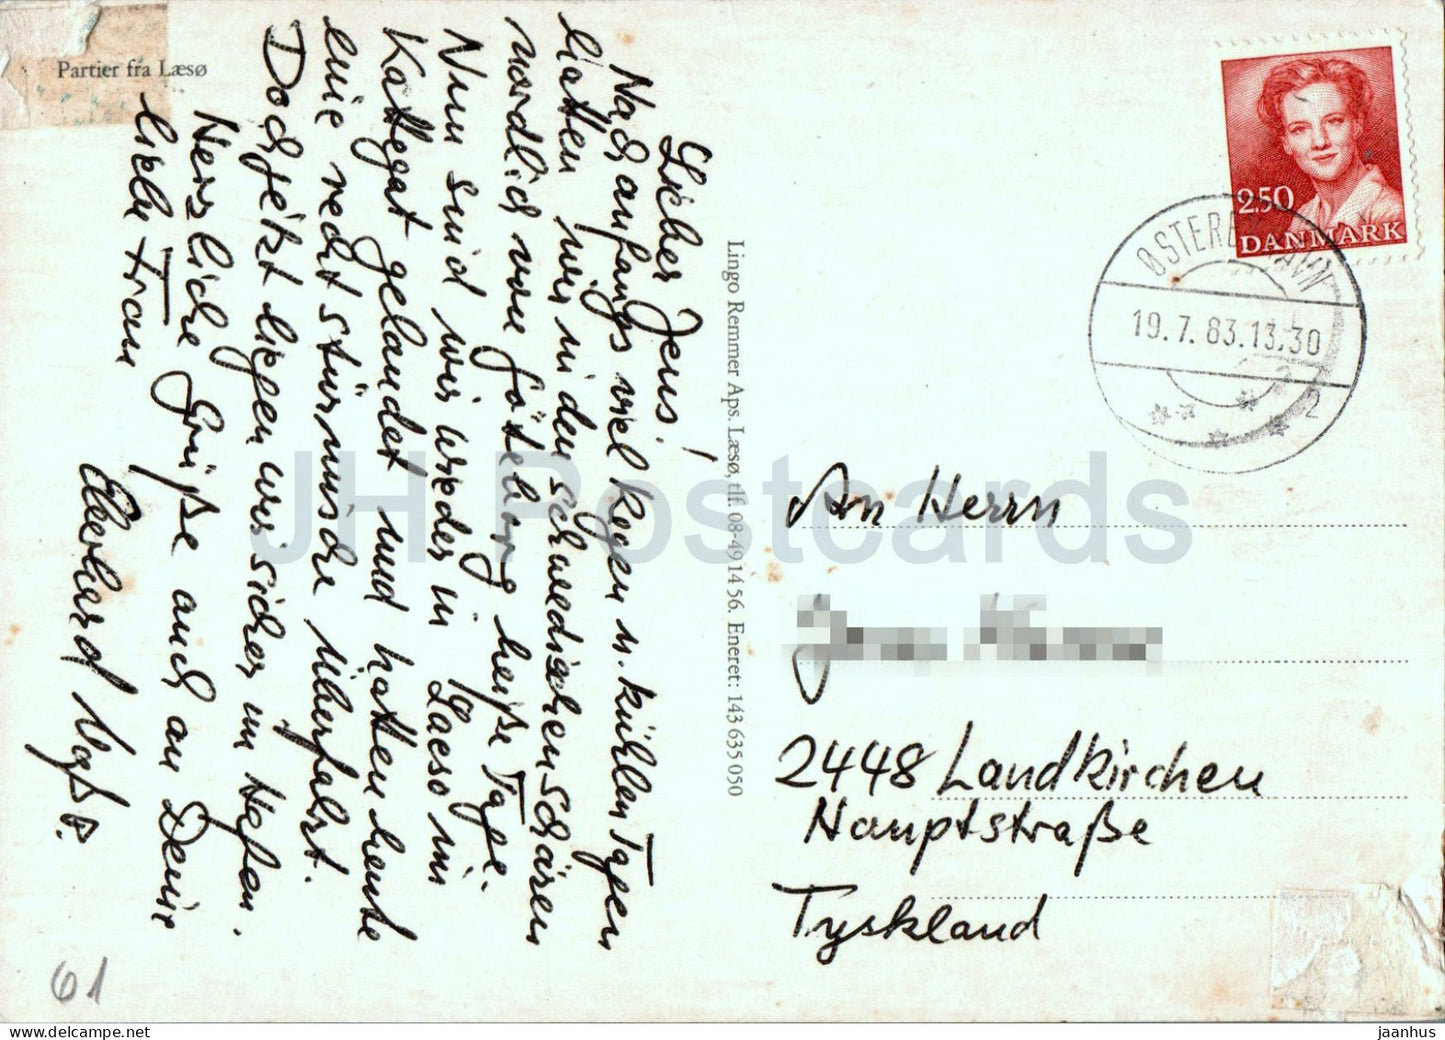 Partier fra Læsø
Lieber Jens!
Nach anfangs viel Regen u. kühlen Tagen
hatten wir in den schwedischen Schären
nördlich von Göteborg heiße Tage.
Nun sind wir wieder in Laesø im
Kattegat gelandet und hatten heute
eine recht stürmische Überfahrt.
Doch jetzt liegen wir sicher im Hafen.
Herzliche Grüße auch an Deine
liebe Frau
Eberhard
Lingo Remmer Aps. Læsø, tlf. 08-49 14 56. Eneret: 143 635 050
2.50
DANMARK
19.7.83.13.30
2
An Herrn
2448 Landkirchen
Hauptstraße
Tyskland
61
JH Postcards
jaanhus on